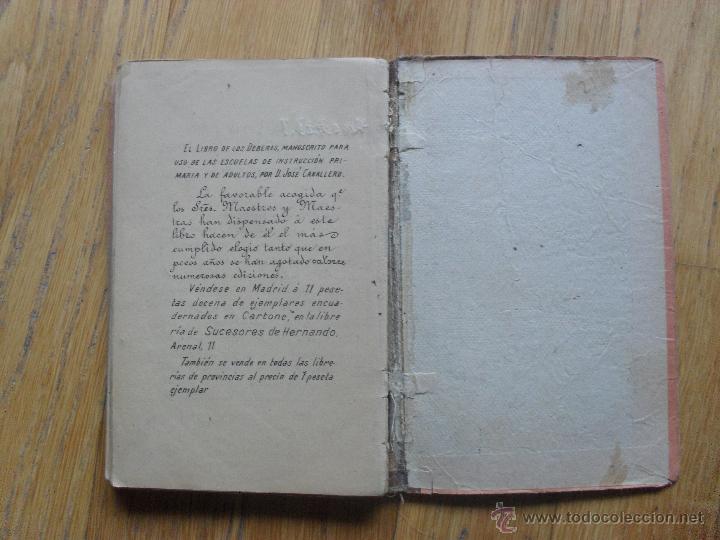 EL LIBRO DE LOS DEBERES, MANUSCRITO PARA
USO DE LAS ESCUELAS DE INSTRUCCIÓN PRI-
MARIA Y DE ADULTOS, POR D. JOSÉ CABALLERO.
La favorable acogida qe
los Sres. Maestros y Maes-
tras han dispensado á este
libro hacen de él el más
cumplido elogio tanto que en
pocos años se han agotado catorce
numerosas ediciones.
Véndese en Madrid á 11 pese-
tas docena de ejemplares encua-
dernados en Cartoné, en la libre
ría de Sucesores de Hernando,
Arenal, 11
También se vende en todas las libre-
rías de provincias al precio de 1 peseta
ejemplar
www.todocoleccion.net